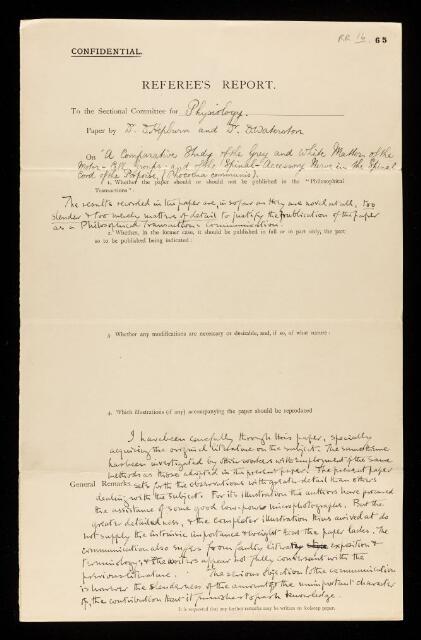 RR 16. 65
CONFIDENTIAL.
REFEREE'S REPORT.
To the Sectional Committee for Physiology.
Paper by D. Hepburn and D. Waterston
On "A Comparative Study of the Grey and White Matter, of the
Motor-Cell groups, and of the Spinal-Accessory Nerve in the Spinal
Cord of the Porpoise (Phocoena communis).
1. Whether the paper should or should not be published in the "Philosophical
Transactions":
The results recorded in the paper are, in so far as they are novel at all, too
slender & too merely matters of detail to justify the publication of the paper
as a Philosophical Transactions communication.
2. Whether, in the former case, it should be published in full or in part only, the part
so to be published being indicated:
3. Whether any modifications are necessary or desirable, and, if so, of what nature:
4. Which illustrations (if any) accompanying the paper should be reproduced
I have been carefully through this paper, specially
the original literature on the subject. The same theme
has been investigated by other workers with employment of the same
methods as those adopted in the present paper. The present paper
General Remarks. sets forth the observations with greater detail than others
dealing with the subject. For its illustration the authors have procured
the assistance of some good low-power microphotographs. But the
greater detailedness, & the completer illustration thus arrived at do
not supply the intrinsic importance & weight that the paper lacks. The
communication also suffers from faulty literary exposition &
terminology, & the writers appear not fully conversant with the
previous literature. The serious objection to the communication
is however the slenderness of the amount & the unimportant character
of, the contribution that it furnishes to fresh knowledge.
It is requested that any further remarks may be written on foolscap paper.